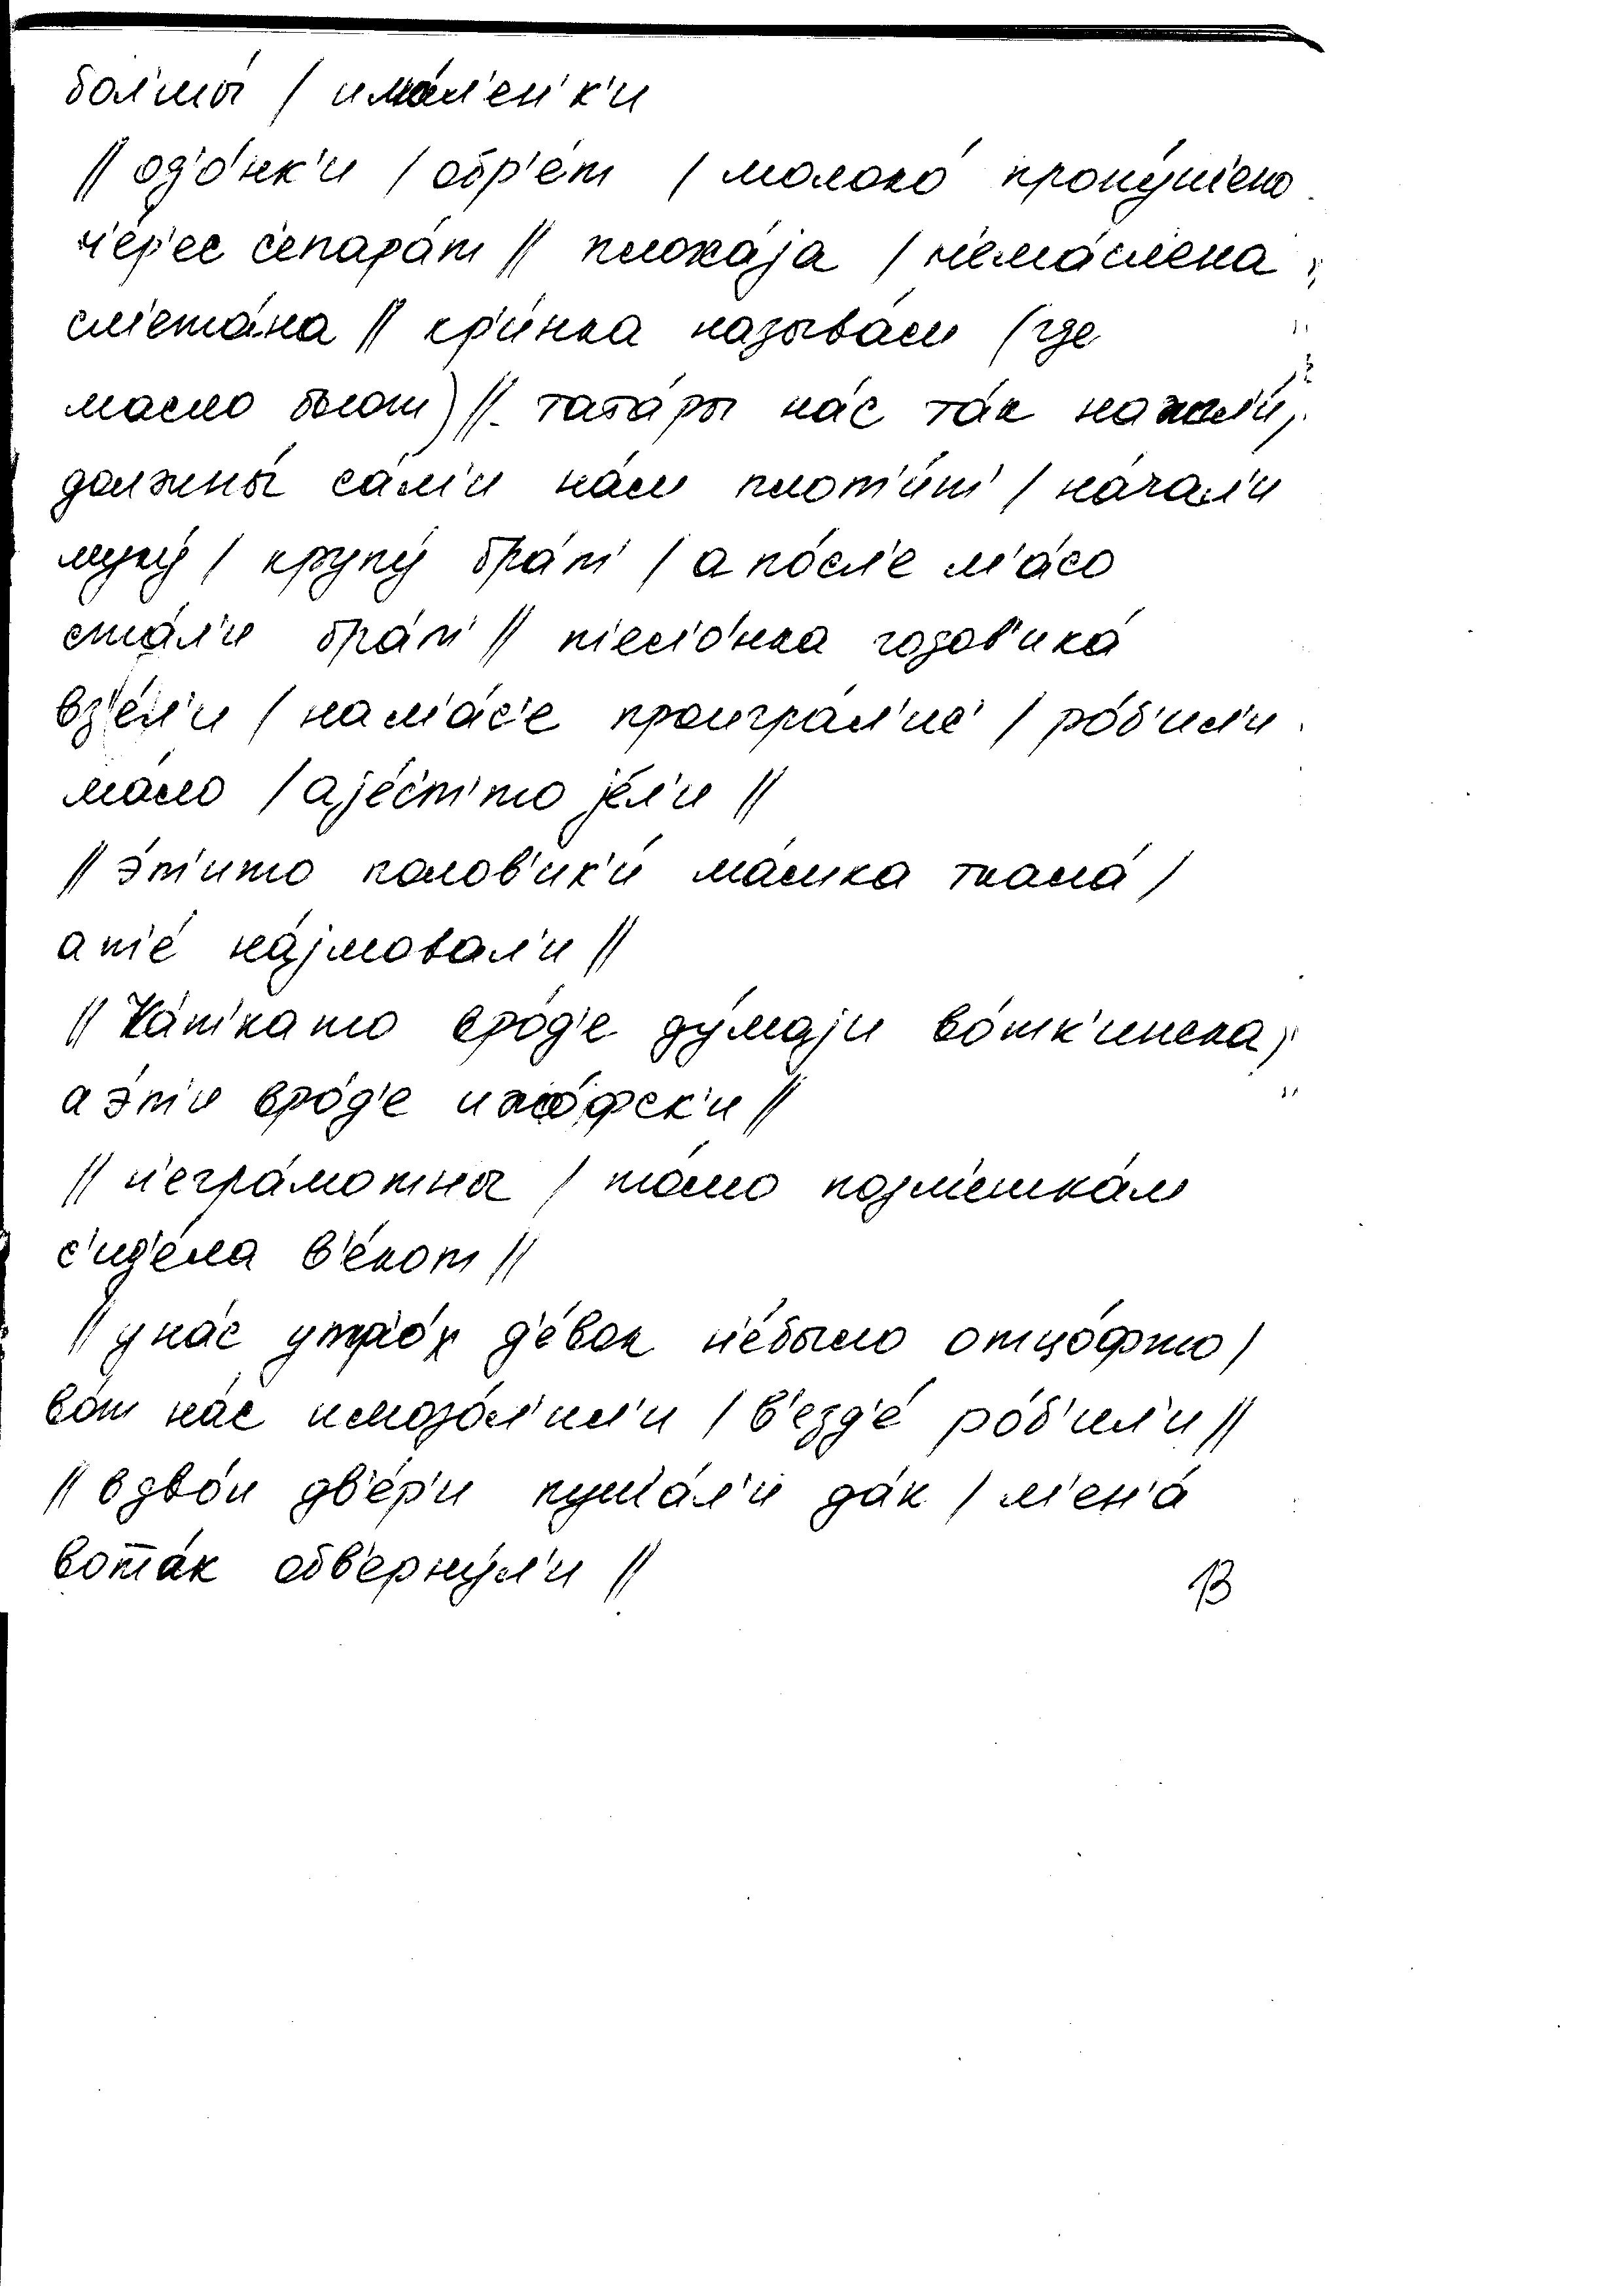 бол'шы́ / има́л'ен'к'и
// од'о́нк'и / обр'е́т / молоко́ пропу́ш'ено
ч'е́р'ес с'епара́т // плоха́jа / н'ема́слена
см'ета́на // кр'и́нка называ́м (где
масло бьют) // тата́ры на́с та́к нажгл'и́,
должны́ са́м'и на́м плот'и́т' / на́чал'и
муку́ / крупу́ бра́т' / а по́сл'е м'а́со
ста́л'и бра́т' // т'ел'о́нка годов'ика́
вз'е́л'и / нам'а́с'е проигра́л'ис' / ро́б'ил'и
ма́ло / аjе́с'т'то jе́л'и //
// э́т'ито полов'ик'и́ ма́мка ткала́ /
а т'е́ на́jмовал'и //
// Ка́т'като вро́д'е ду́маjи во́тк'инска,
а э́т'и вро́д'е ижо́фск'и //
// н'егра́мотны / то́л'о подм'ешка́м
с'ид'е́ла в'е́кот //
// у на́с утр'о́х д'е́вок н'е́было отцо́фто /
во́т на́с имозо́л'ил'и / в'езд'е́ ро́б'ил'и //
// вдво́и дв'е́р'и пуш'а́л'и да́к / м'ен'а́
вота́к обв'ерну́л'и //
13